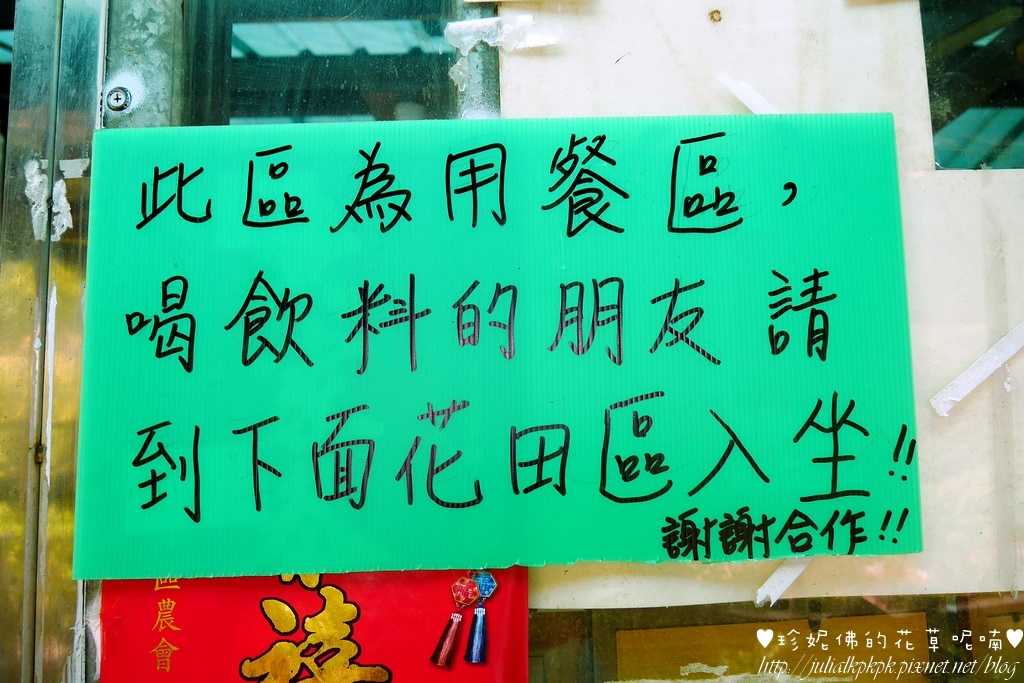 此區為用餐區，
喝飲料的朋友請
到下面花田區入坐!!
謝謝合作!!
區農會
♥珍妮佛的花草呢喃♥
http://julialkpkpk.pixnet.net/blog